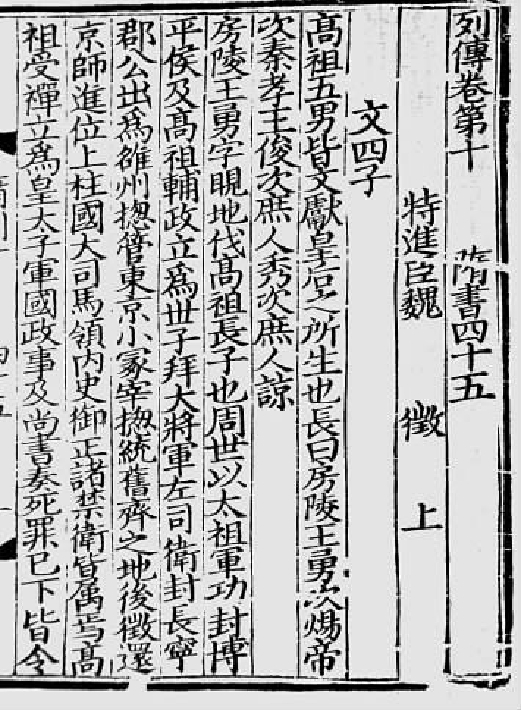 列傳卷第十 隋書四十五
特進臣魏 徵 上
文四子
髙祖五男皆文獻皇后之所生也長曰房陵王勇次煬帝
次秦孝王俊次庶人秀次庶人諒
房陵王勇字睍地伐髙祖長子也周世以太祖軍功封博
平侯及髙祖輔政立爲世子拜大將軍左司衛封長寧
郡公出爲雒州揔管東京小冢宰揔統舊齊之地後徵還
京師進位上柱國大司馬領内史御正諸禁衛皆属焉髙
祖受禪立爲皇太子軍國政事及尚書奏死罪已下皆令